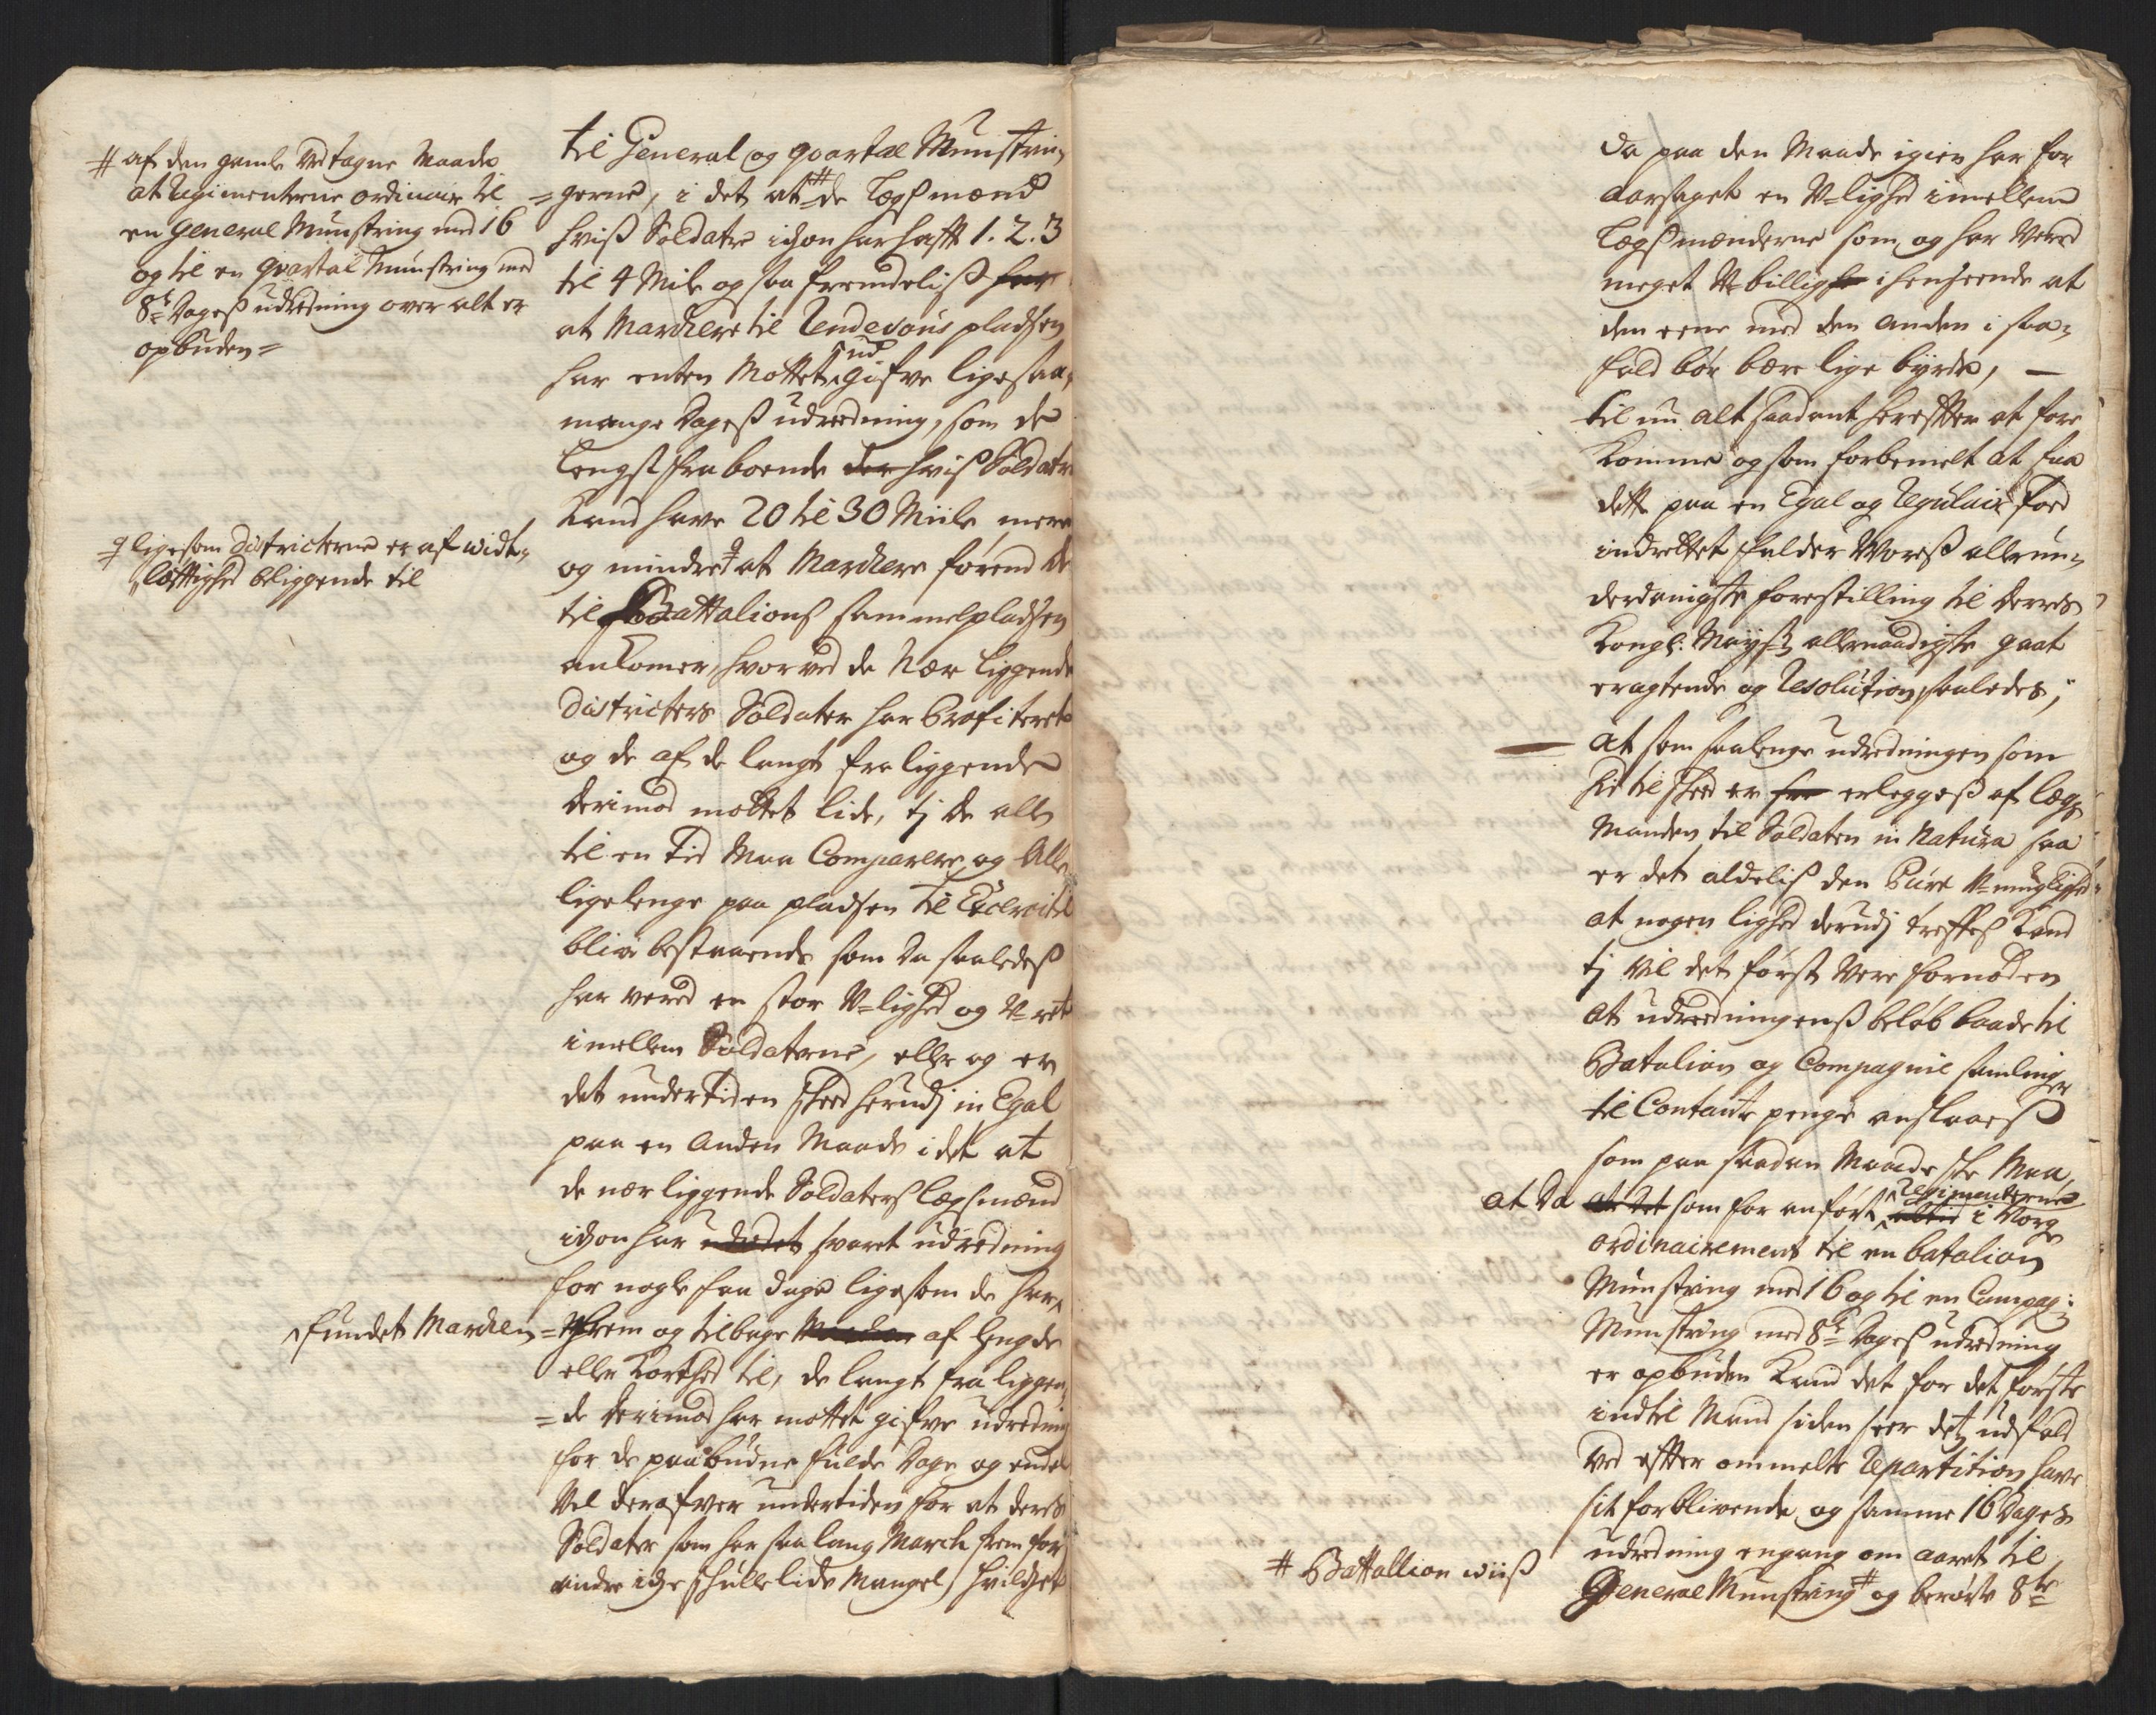 # af den gamle vedtagne Maade
at Regimenterne ordinair til
en General Munstring med 16
og til en qvartal Munstring med
8te Dages udredning over alt er
opbuden =
ligesom Districterne er af widt=
løfftighed beliggende til
fundet Marchen
til General og qvartal Munstrin=
=gerne, i det at # de Legsmænd
hviß Soldater ichon har hafft 1. 2. 3
til 4 Mile og saa fremdeliß har
at Marchere til Rendevous pladsen
har enten Mottet ud gifve ligesaa
mange Dageß udredning, som de
lengst fra boende der hviß Soldater
kand have 20 til 30 Miile mere
og mindre at Marchere førend de
til Battalions sammelpladsen
ankomer, hvorved de nær liggende
Districters Soldater har Profiteret
og de af de langt fra liggende
derimod mottet lide, tj de alle
til en Tid maa Comparere og alle
ligelenge paa pladsen til Exercitie
blive bestaaende som da saaledeß
har vered en stor U=lighed og U=ret
imellem Soldaterne, eller og er
det undertiden skeed herudj in Egal
paa en anden Maade i det at
de nær liggende Soldaters legsmænd
ichon har udredet svaret udredning
for nogle faa dage ligesom de har
=frem og tilbage Marchen af lengde
eller korthed til, de langt fra liggen=
=de derimod har mottet gifve udredning
for de paabudne fulde Dage og endel
vel derofver undertiden for at deres
Soldater som har saa lang March frem for
andre iche skulle lide Mangel, hvilchet
da paa den Maade igien har for
aarsaget en U=lighed imellem
Legsmænderne som og har vered
meget U=billig i henseende at
den eene med den anden i saa=
fald bør bære lige byrde, —
til nu alt saadant hereffter at fore
komme og som forbemelt at faa
dette paa en Egal og Regulair foed
indrettet falder Voreß allerun=
derdanigste forestilling til Deres
Kongl: Mayst: allernaadigste gaat
eragtende og Resolution saaledes,
at som saalenge udredningen som
hid til skeed er erleggeß af Legs
Manden til Soldaten in Natura saa
er det aldeliß den Pure U=muglighed
at nogen lighed derudj treffeß kand
tj vil det først vere fornøden
at udredningenß beløb baade til
Batalion og Compagnie samlinger
til Contante penge anslaaeß
som paa saadan Maade ske Maa,
at da at det som for anført Regimenterne altid i Norge
ordinairement til en batalion
Munstring med 16 og til en Compag:
Munstring med 8te Dageß udredning
er opbuden kand det for det første
indtil Mand siden seer detz udfald
ved efter ommelte Repartition have
sit forblivende og samme 16 Dages
udredning engang om aaret til
General Munstring # og berørte 8te
# Battallion wiiß